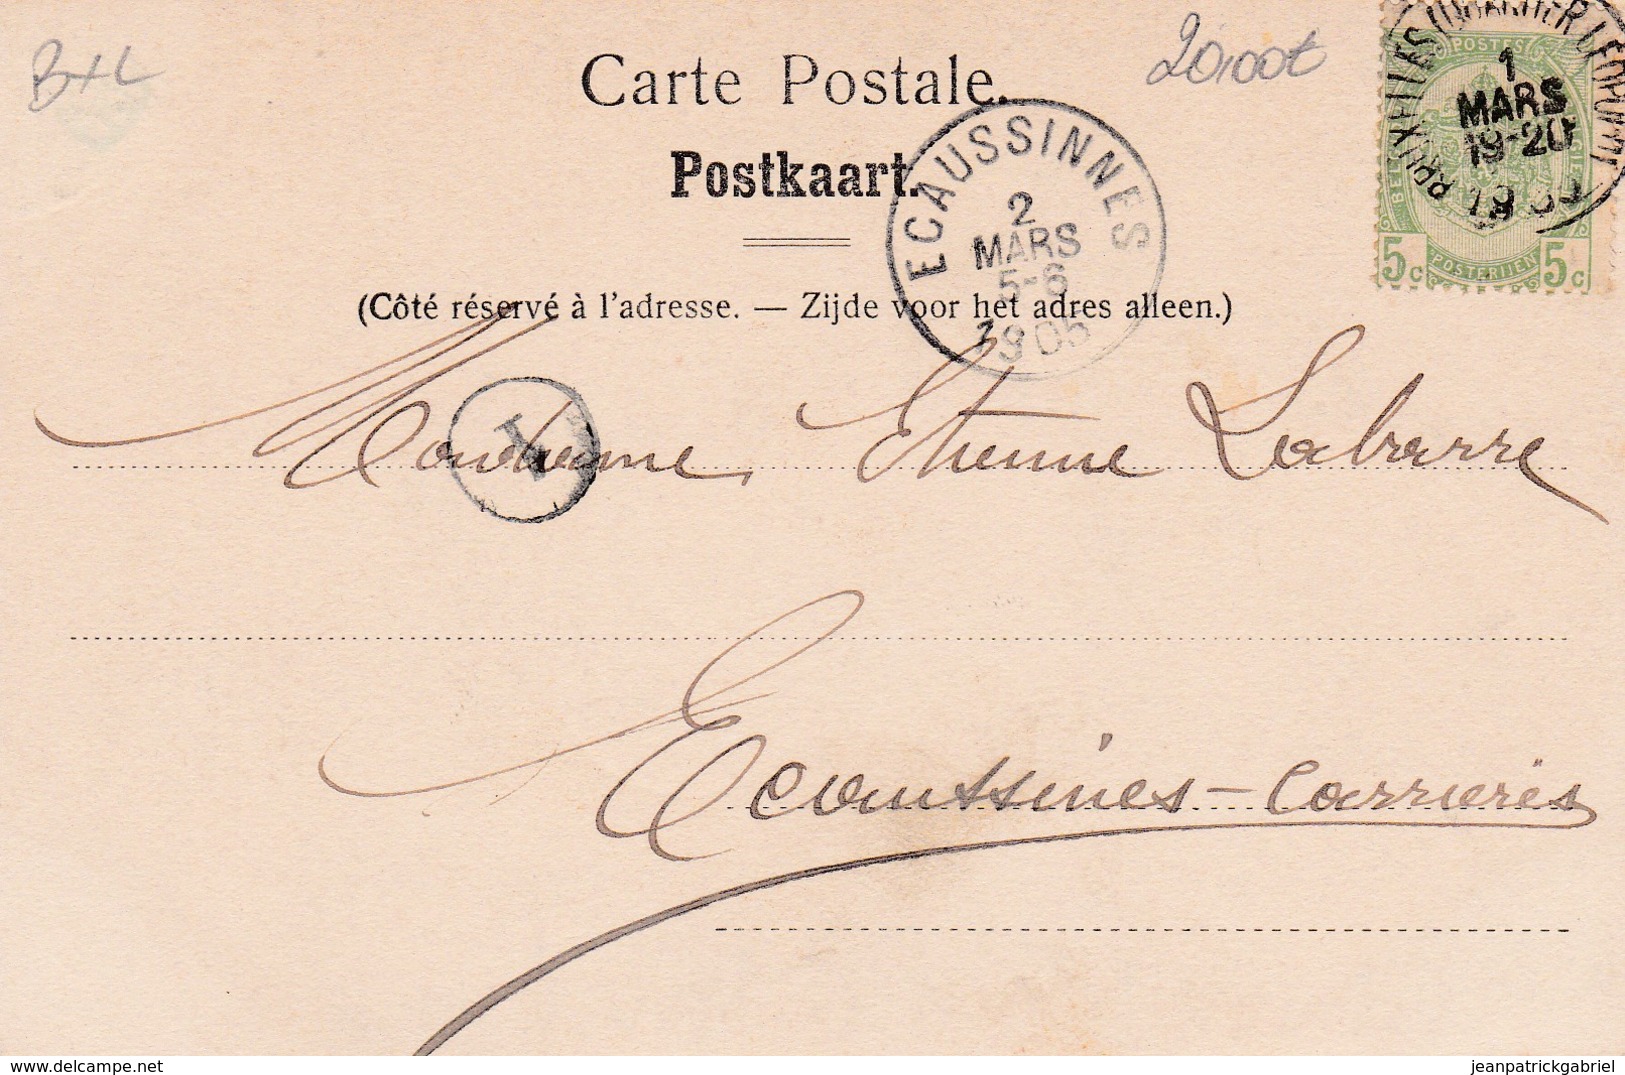 BXL
20,00€
Carte Postale.
Postkaart.
(Côté réservé à l'adresse. — Zijde voor het adres alleen.)
BRUXELLES (QUARTIER LÉOPOLD)
1
MARS
19-20
POSTES
5c POSTERIJEN 5c
ECAUSSINNES
2
MARS
5-6
1905
1
Madame Etienne Labarre
Ecaussines-Carrières
delcampe.net
jeanpatrickgabriel